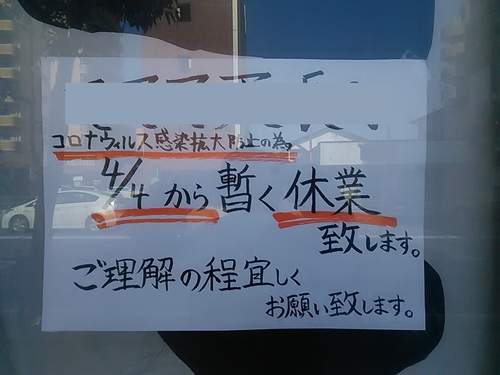 コロナウィルス感染抗大防止の為。
4/4から暫く休業
致します。
ご理解の程宜しく
お願い致します。